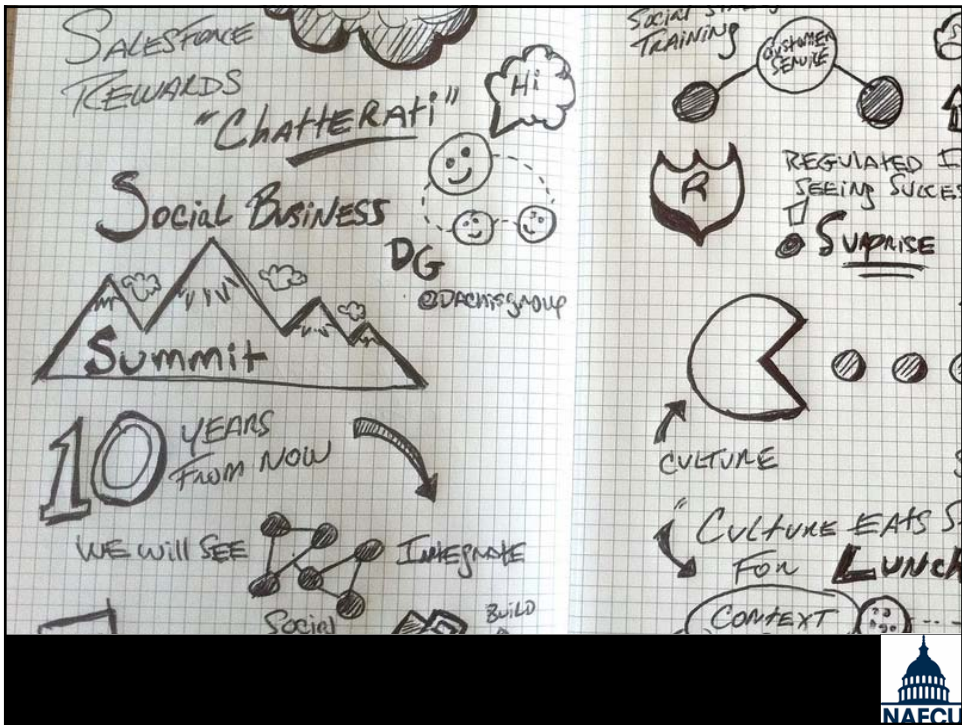 SALESFORCE
REWARDS
"ChatteRati"
Hi
Social Business
DG
@Dachisgroup
Summit
10 YEARS
FROM NOW
WE Will SEE
INTEGRATE
Social
BUILD
TRAINING
CUSTOMER
SERVICE
R
REGULATED
SEEING
SURPRISE
CULTURE
"CULTURE EATS
FOR LUNCH
CONTEXT
NAFCU